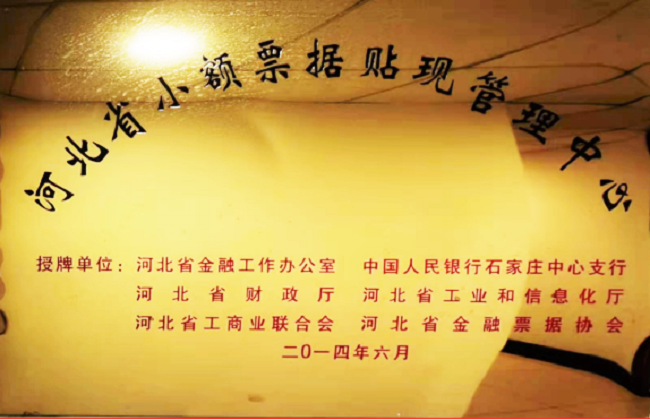 河北省小额票据贴现管理中心
授牌单位：河北省金融工作办公室 中国人民银行石家庄中心支行
河北省财政厅 河北省工业和信息化厅
河北省工商业联合会 河北省金融票据协会
二0一四年六月